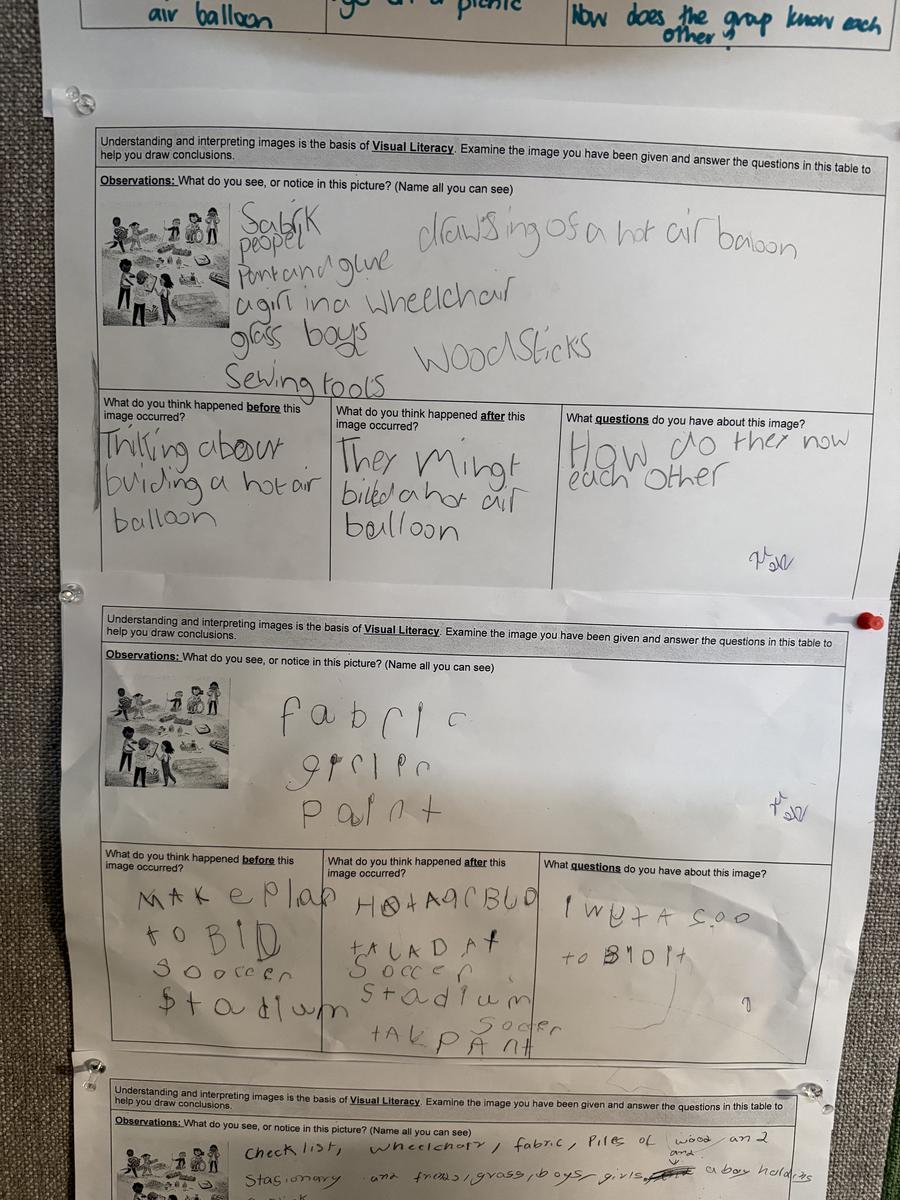 air balloon
go on a picnic
How does the group know each
other?
Understanding and interpreting images is the basis of Visual Literacy. Examine the image you have been given and answer the questions in this table to
help you draw conclusions.
Observations: What do you see, or notice in this picture? (Name all you can see)
Sabrik
peopel
Pant and glue
a girl in a wheelchair
glass boys
Sewing tools
drawsing of a hot air baloon
wood Sticks
What do you think happened before this
image occurred?
Thiking about
buiding a hot air
balloon
What do you think happened after this
image occurred?
They Mingt
biled a hot air
balloon
What questions do you have about this image?
How do they now
each other
Understanding and interpreting images is the basis of Visual Literacy. Examine the image you have been given and answer the questions in this table to
help you draw conclusions.
Observations: What do you see, or notice in this picture? (Name all you can see)
fabric
paint
What do you think happened before this
image occurred?
MAKe Plan
to BID
Sooccer
Stadium
What do you think happened after this
image occurred?
tALADAt
Soccer
Stadium
Socer
tAk PANt
What questions do you have about this image?
to BIDIt
Understanding and interpreting images is the basis of Visual Literacy. Examine the image you have been given and answer the questions in this table to
help you draw conclusions.
Observations: What do you see, or notice in this picture? (Name all you can see)
Check list, wheelchair, fabric, Piles of wood and
Stasionary and trees, grass, boys, girls, a boy holding